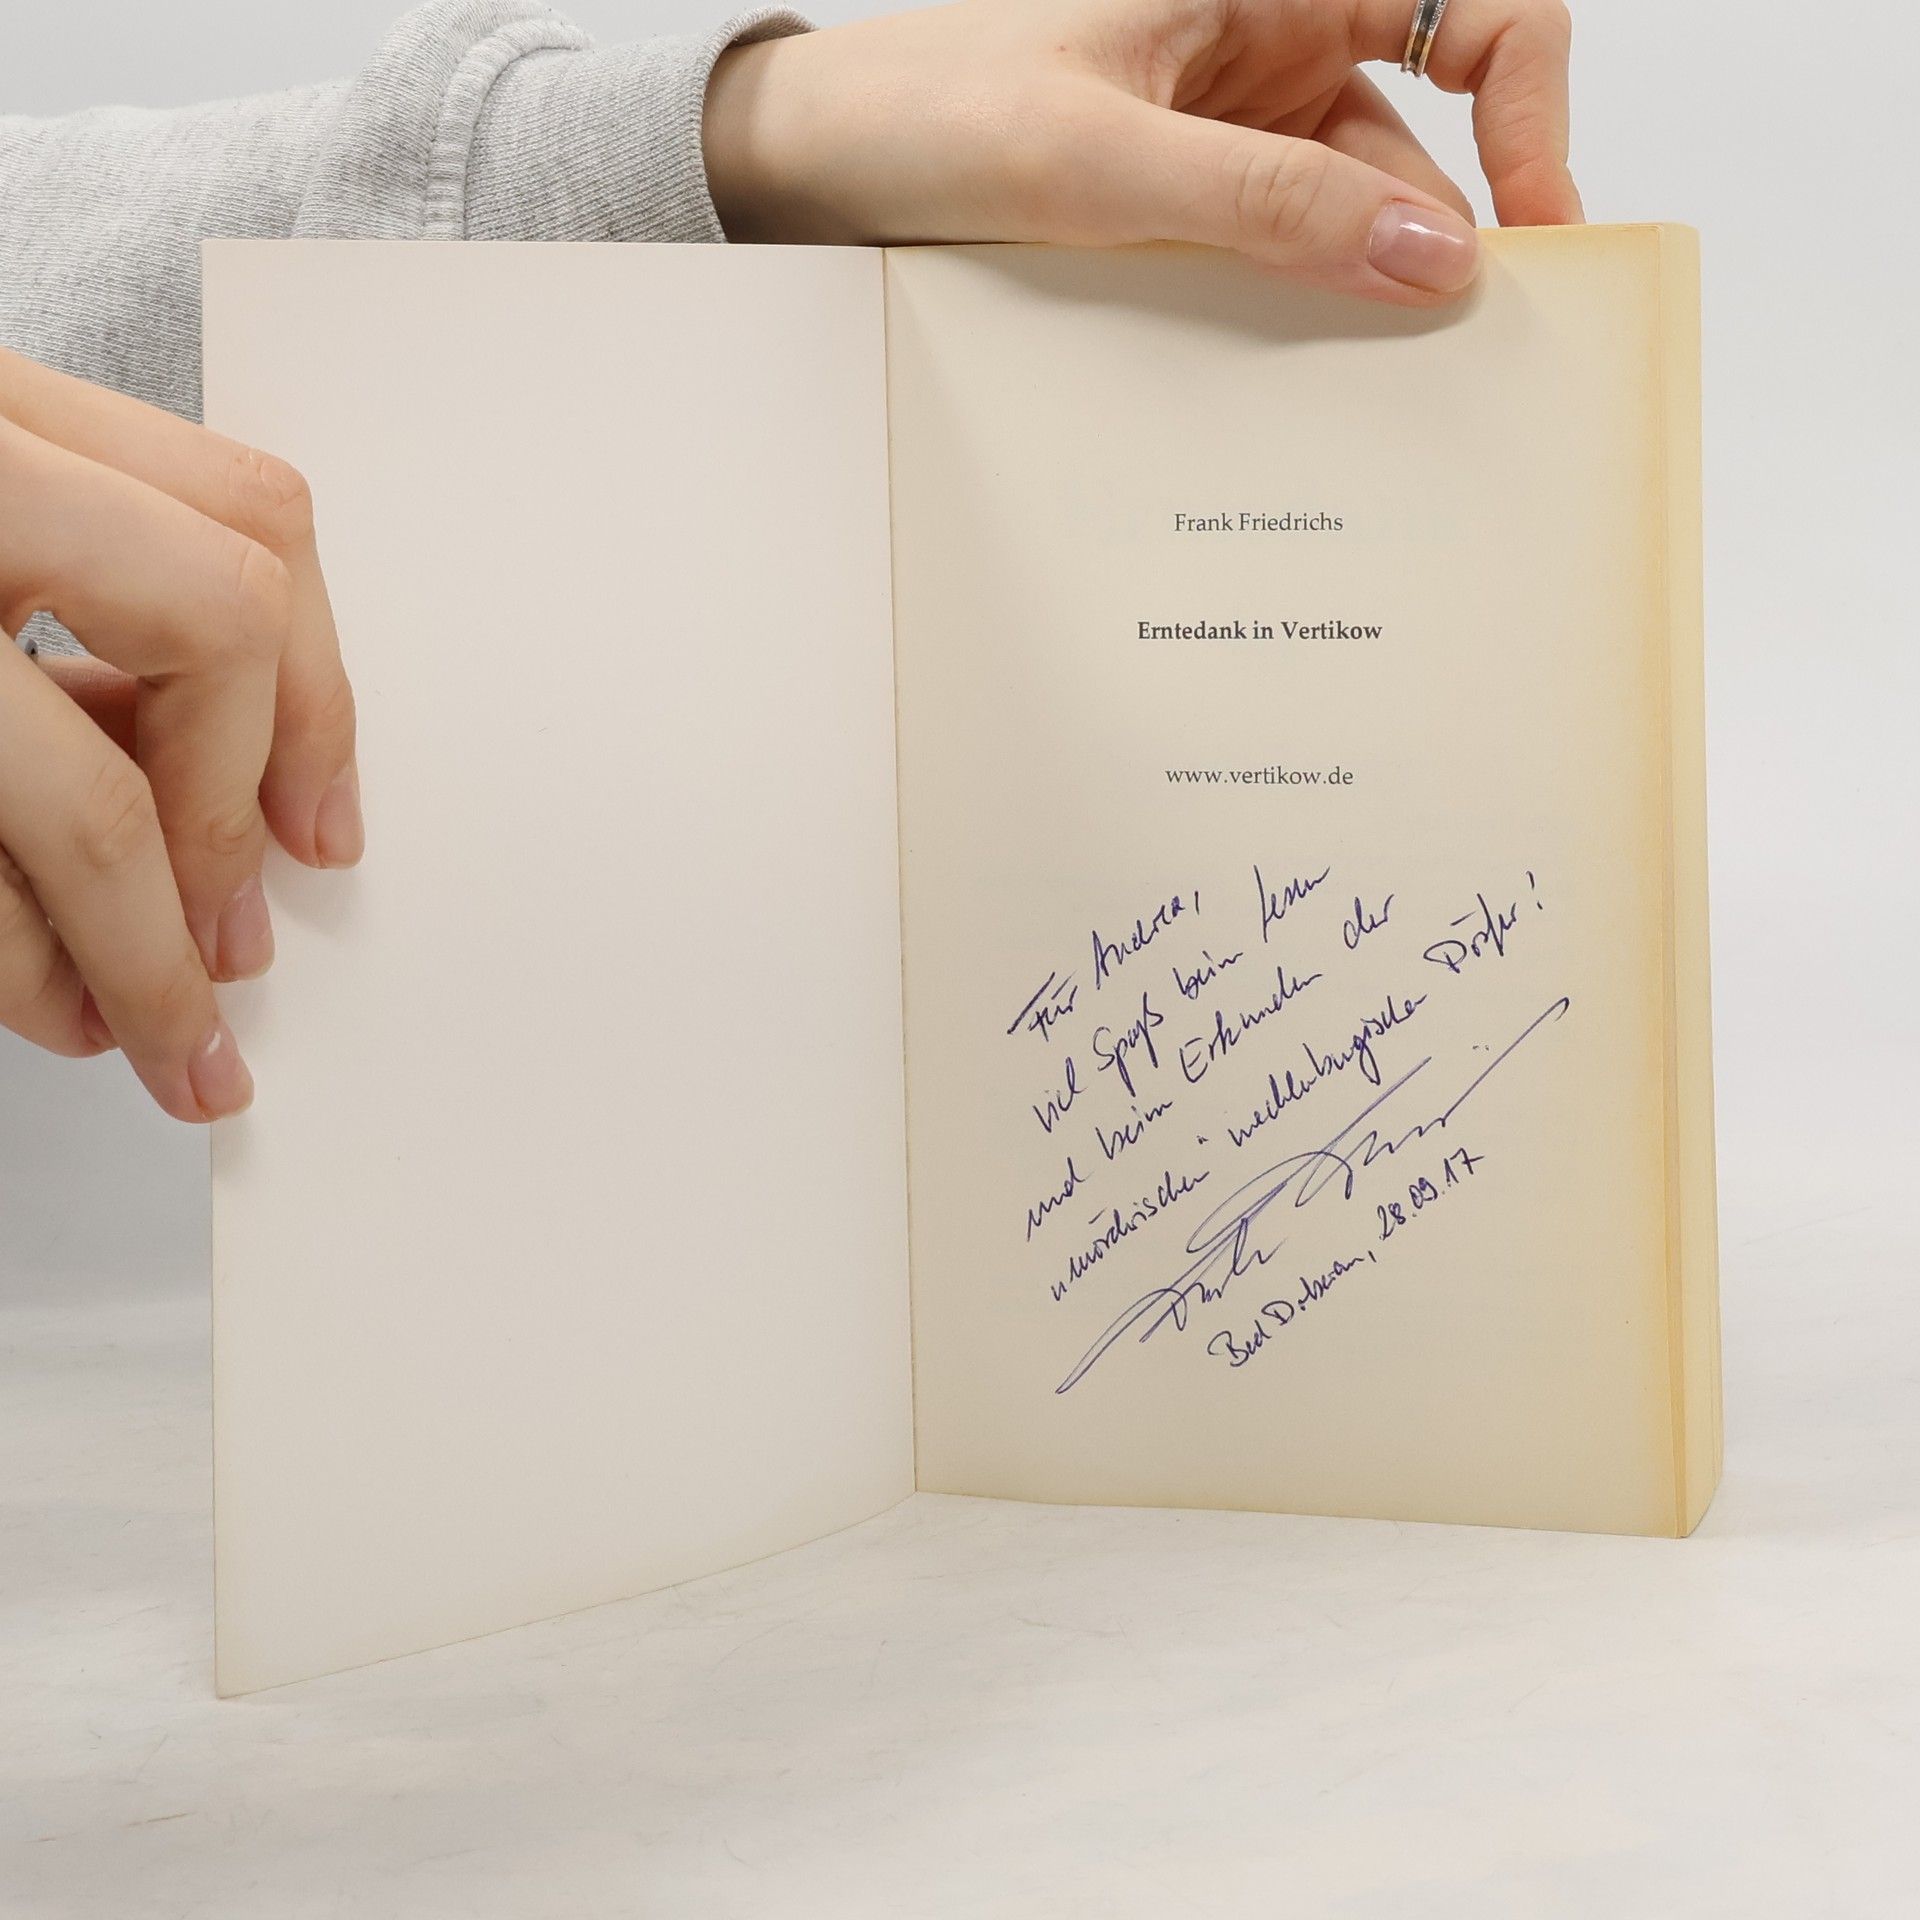 Frank Friedrichs
Erntedank in Vertikow
www.vertikow.de
Für Andrea,
viel Spaß beim Lesen
und beim Erkunden der
"mörderischen" mecklenburgischen Dörfer!
Bad Doberan, 28.09.17